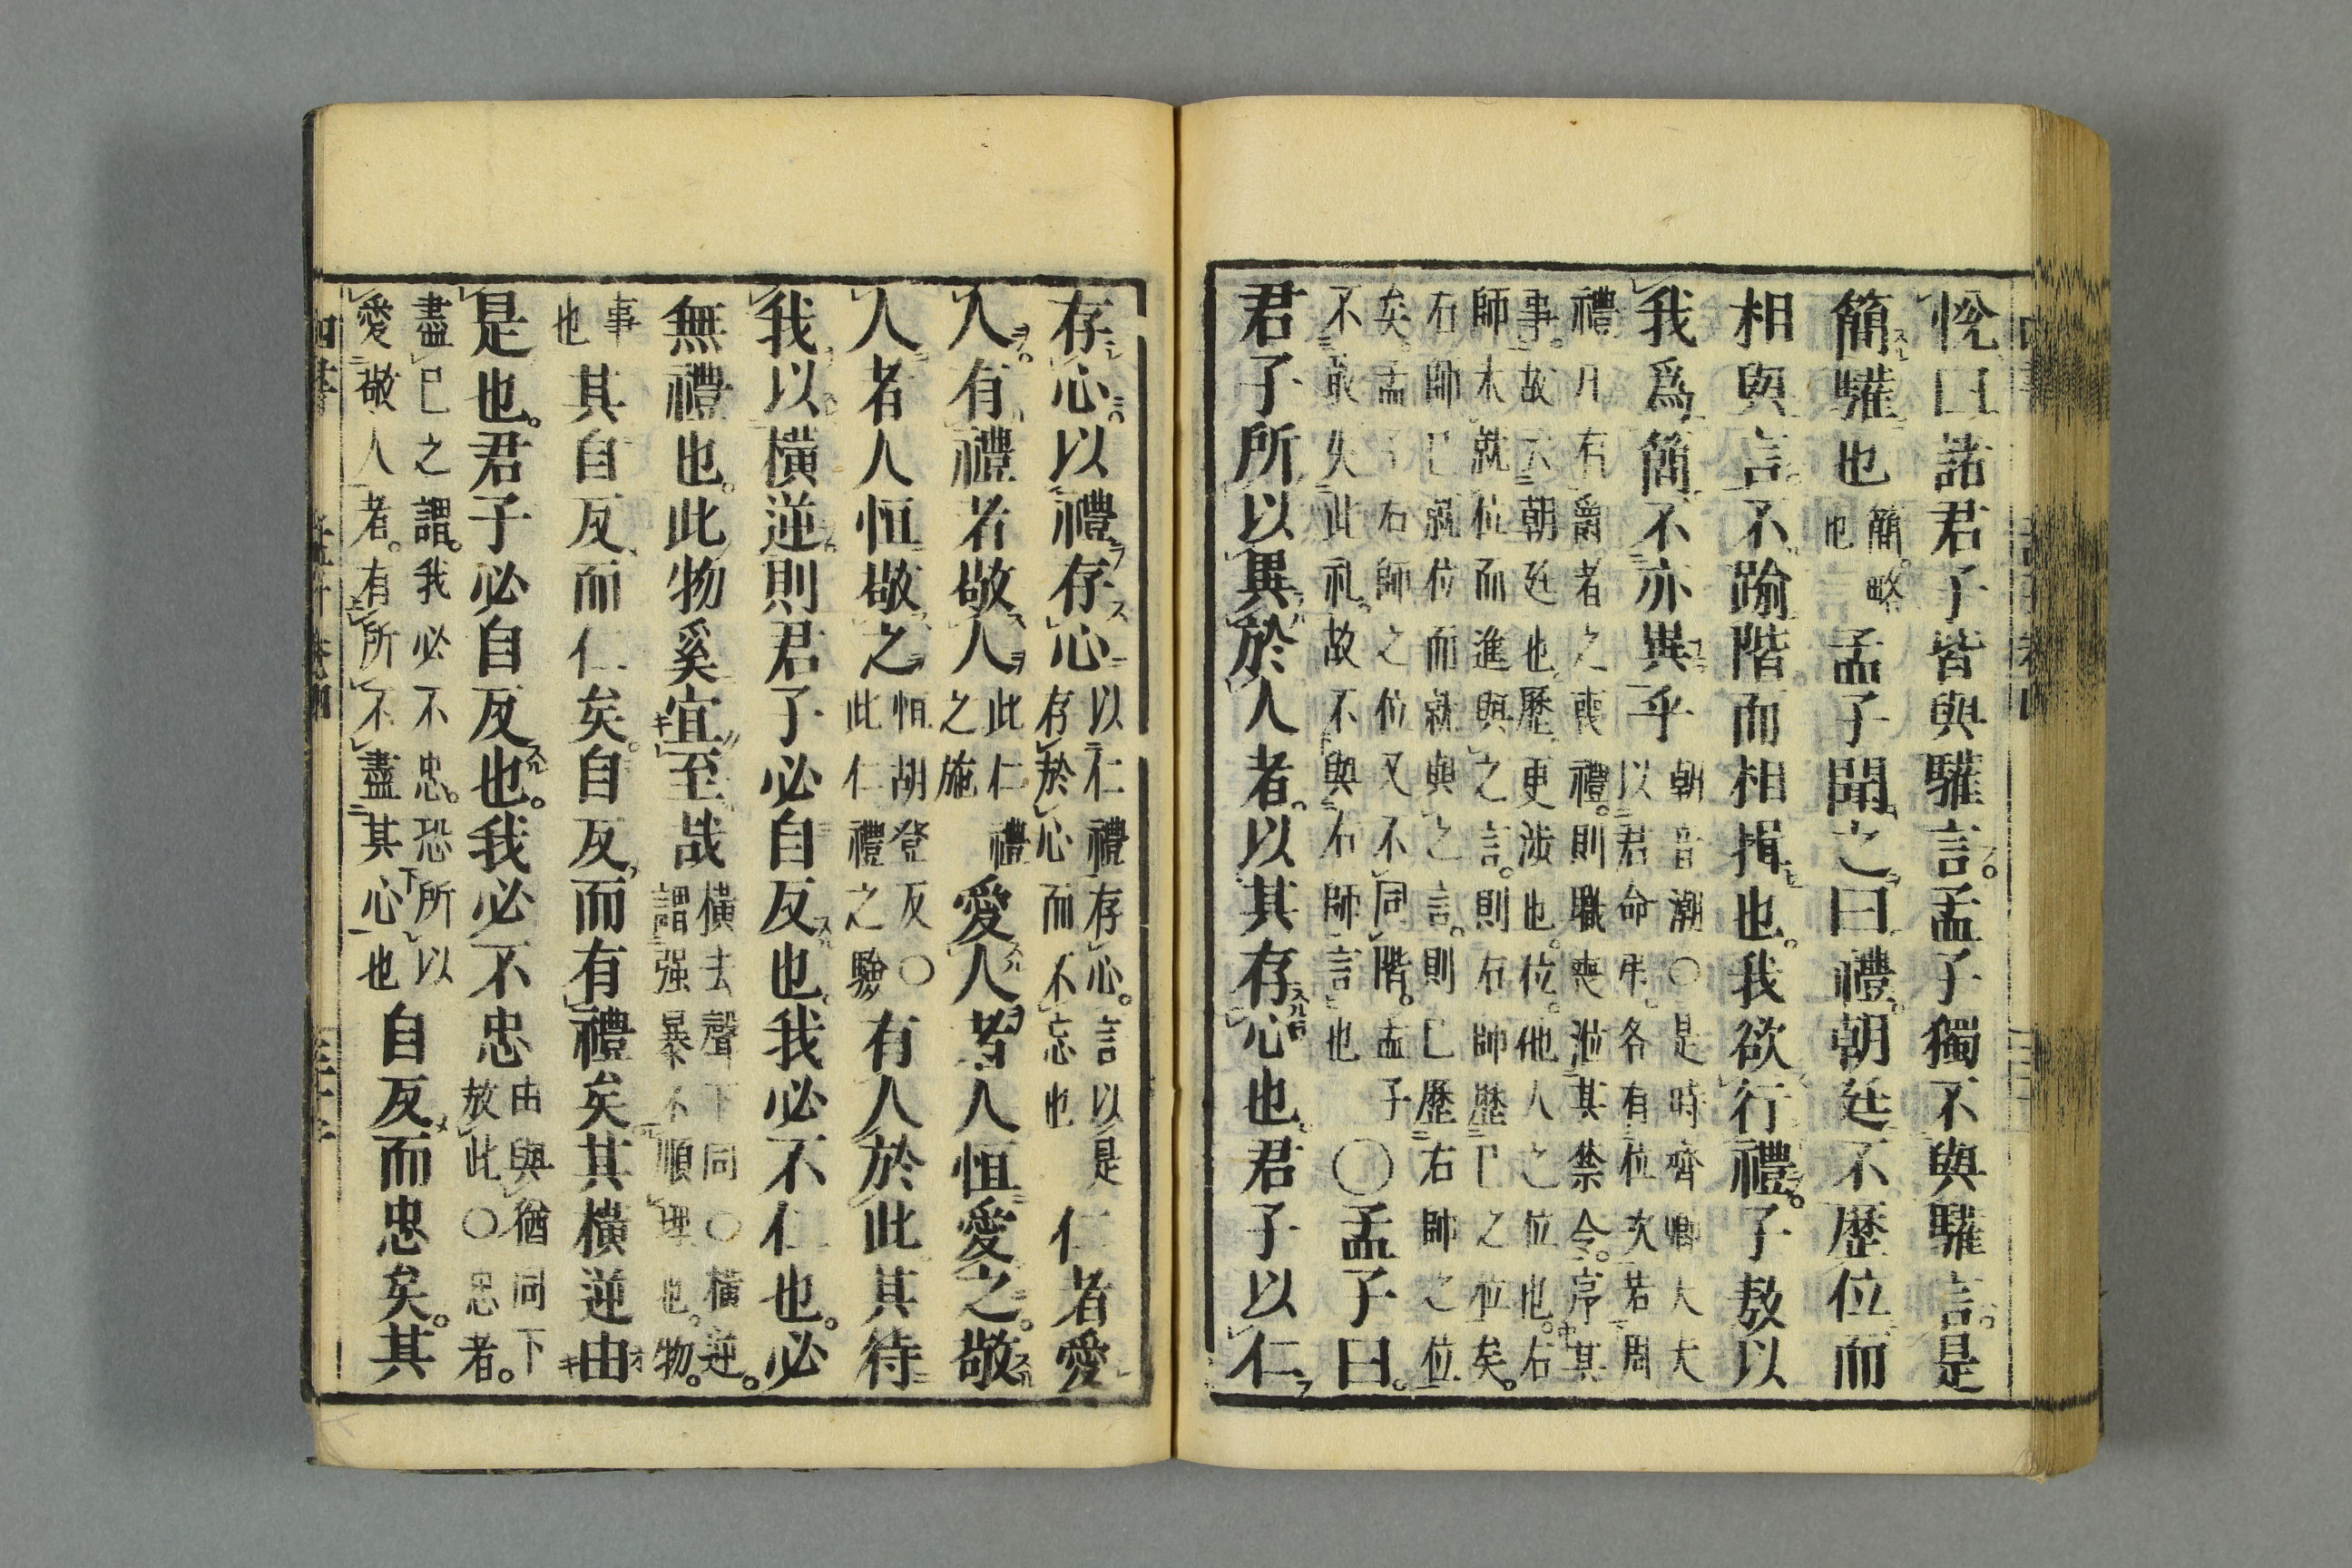 悅曰諸君子皆與驩言孟子獨不與驩言是
簡驩也簡略也孟子聞之曰禮朝廷不歷位而
相與言不踰階而相揖也我欲行禮子敖以
我爲簡不亦異乎朝音潮○是時齊卿大夫以君命弔各有位次若周
禮凡有爵者之喪禮則職喪涖其禁令序其
事故云朝廷也歷更涉也位他人之位也右
師未就位而進與之言則右師歷已之位矣
右師已就位而就與之言則已歷右師之位
矣孟子右師之位又不同階孟子
不敢失此礼故不與右師言也○孟子曰
君子所以異於人者以其存心也君子以仁
存心以禮存心以仁禮存心言以是存於心而不忘也仁者愛
人有禮者敬人此仁禮之施愛人者人恒愛之敬
人者人恒敬之恒胡登反○此仁禮之驗有人於此其待
我以橫逆則君子必自反也我必不仁也必
無禮也此物奚宜至哉橫去聲下同○橫逆謂强暴不順理也物
事也其自反而仁矣自反而有禮矣其橫逆由
是也君子必自反也我必不忠由與猶同下放此○忠者
盡已之謂我必不忠恐所以
愛敬人者有所不盡其心也自反而忠矣其
四書
孟子卷四